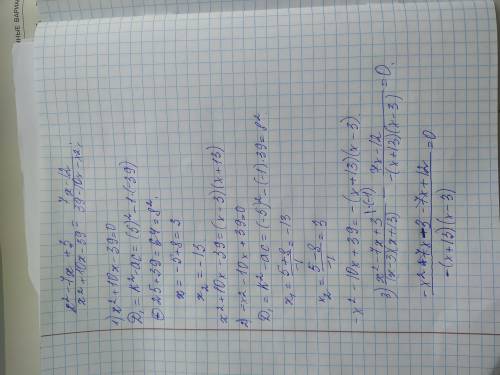 x² - 7x + 3 / x² + 10x - 39 = 7x - 12 / 39 - 10x - x² ;
1) x² + 10x - 39 = 0
D₁ = k² - ac = (-5)² - 1·(-39)
= 25 + 39 = 64 = 8².
x₁ = -5 + 8 = 3
x₂ = -13
x² + 10x - 39 = (x - 3)(x + 13)
2) -x² - 10x + 39 = 0
D₁ = k² - ac = (-5)² - (-1)·39 = 8²
x₁ = 5 + 8 / -1 = -13
x₂ = 5 - 8 / -1 = 3
-x² - 10x + 39 = -(x + 13)(x - 3)
3) x² - 7x + 3 |·(-1) / (x - 3)(x + 13) - 7x - 12 / -(x + 13)(x - 3) = 0.
-x² + 7x - 3 - 7x + 12 / -(x + 13)(x - 3) = 0